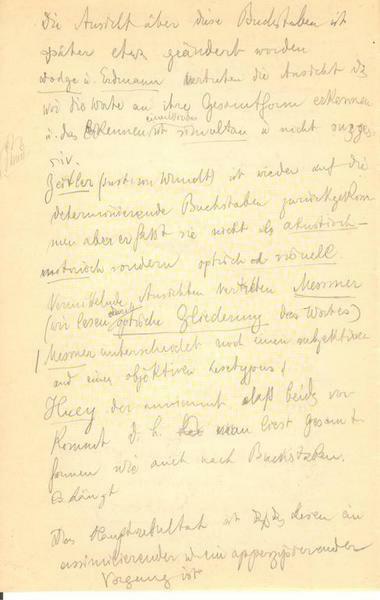 die Ansicht über diese Buchstaben ist
später etwas geändert worden
Erdmann vertreten die Ansicht dß
wir die Worte an ihre Gesamtform erkennen
u. das Erkennen ist simultan u nicht suzges
siv.
Zeitler (Inst. von Wundt) ist wieder auf die
determinierende Buchstaben zurückgekom
men aber erfaßt sie nicht als akustisch-
motorisch sondern optisch od visuell.
Vermittelnde Ansichten vertreten Messmer
(wir lesen optische Gliederung des Wortes)
Messmer unterscheidet noch einen subjektiven
und einen objektiven Lesetypus
Huey der annimmt daß beides vor
kommt d. h. man liest Gesamt
formen wie auch nach Buchstaben.
Es hängt
Das Hauptresultat ist Lesen ein
assimilierender u ein apperzipierender
Vorgang ist